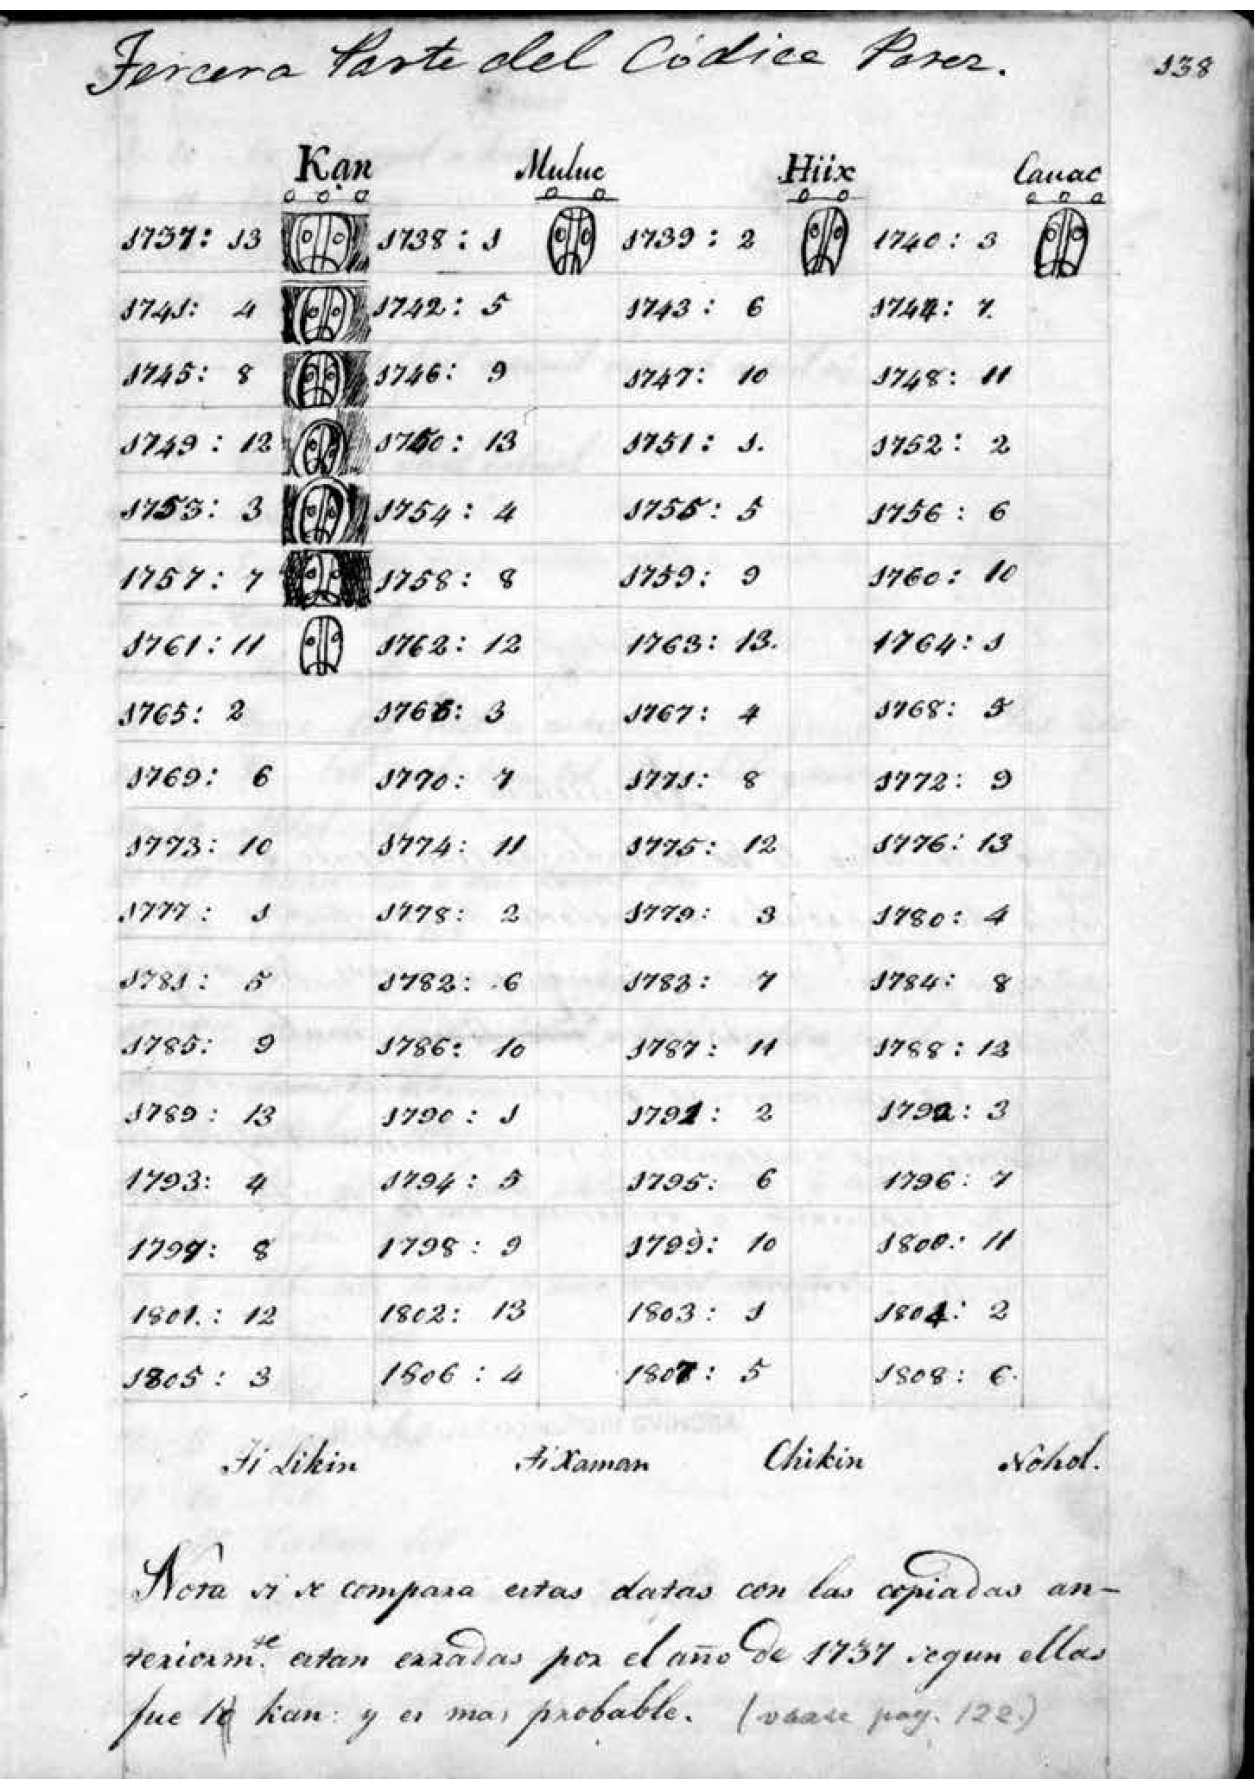 Tercera Parte del Códice Perez.
138
Kan Muluc Hiix Cauac
1737: 13 1738: 1 1739: 2 1740: 3
1741: 4 1742: 5 1743: 6 1744: 7.
1745: 8 1746: 9 1747: 10 1748: 11
1749: 12 1750: 13 1751: 1. 1752: 2
1753: 3 1754: 4 1755: 5 1756: 6
1757: 7 1758: 8 1759: 9 1760: 10
1761: 11 1762: 12 1763: 13. 1764: 1
1765: 2 1766: 3 1767: 4 1768: 5
1769: 6 1770: 7 1771: 8 1772: 9
1773: 10 1774: 11 1775: 12 1776: 13
1777: 1 1778: 2 1779: 3 1780: 4
1781: 5 1782: 6 1783: 7 1784: 8
1785: 9 1786: 10 1787: 11 1788: 12
1789: 13 1790: 1 1791: 2 1792: 3
1793: 4 1794: 5 1795: 6 1796: 7
1797: 8 1798: 9 1799: 10 1800: 11
1801.: 12 1802: 13 1803: 1 1804: 2
1805: 3 1806: 4 1807: 5 1808: 6.
Ti Likin Ti Xaman Chikin Nohol.
Nota si se compara estas datas con las copiadas an-
teriorm.te estan erradas por el año de 1737 segun ellas
fue kan: y es mas probable. (vease pag. 122.)